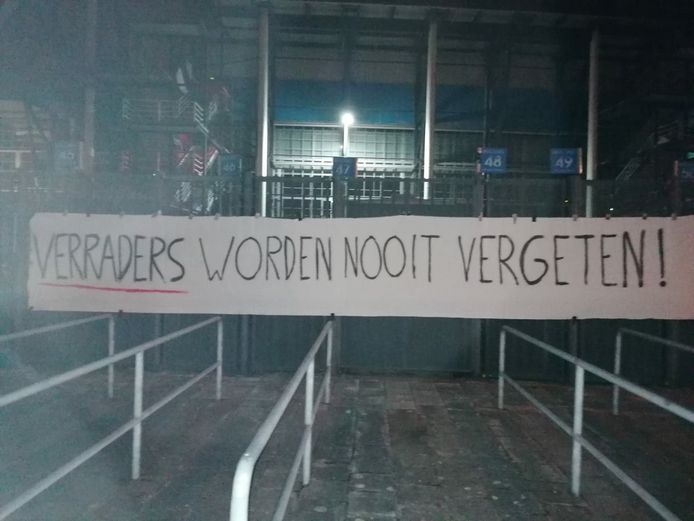 46
47
48
49
VERRADERS WORDEN NOOIT VERGETEN!